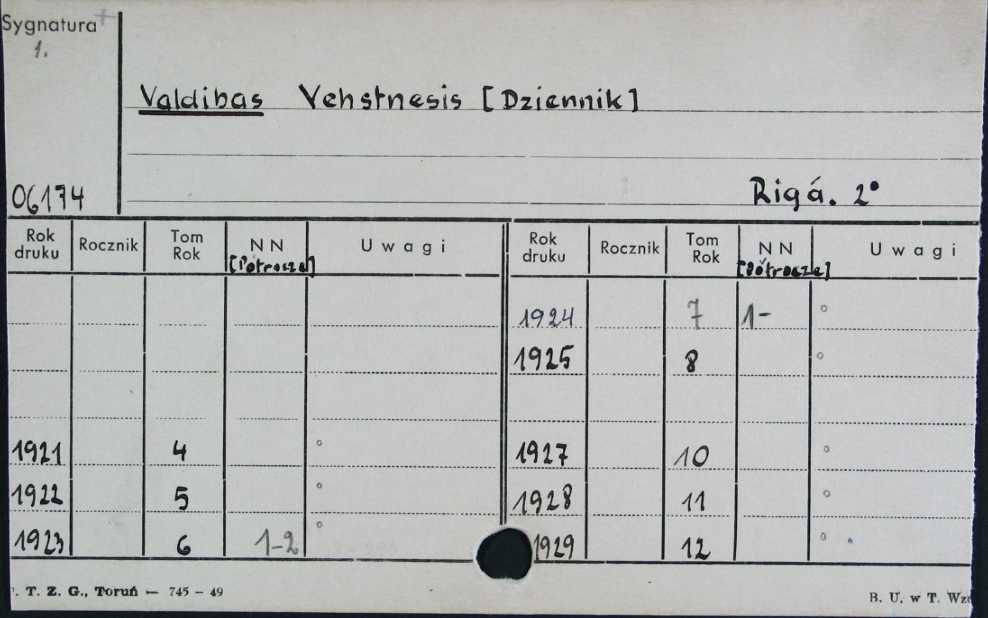 Sygnatura
1.
Valdibas Vehstnesis [Dziennik]
06174
Rigá. 2°
Rok druku Rocznik Tom Rok NN [Półrocze] Uwagi Rok druku Rocznik Tom Rok NN [Półrocze] Uwagi
1924 7 1-
1925 8
1921 4 1927 10
1922 5 1928 11
1923 6 1-2 1929 12
. T. Z. G., Toruń — 745 — 49
B. U. w T.